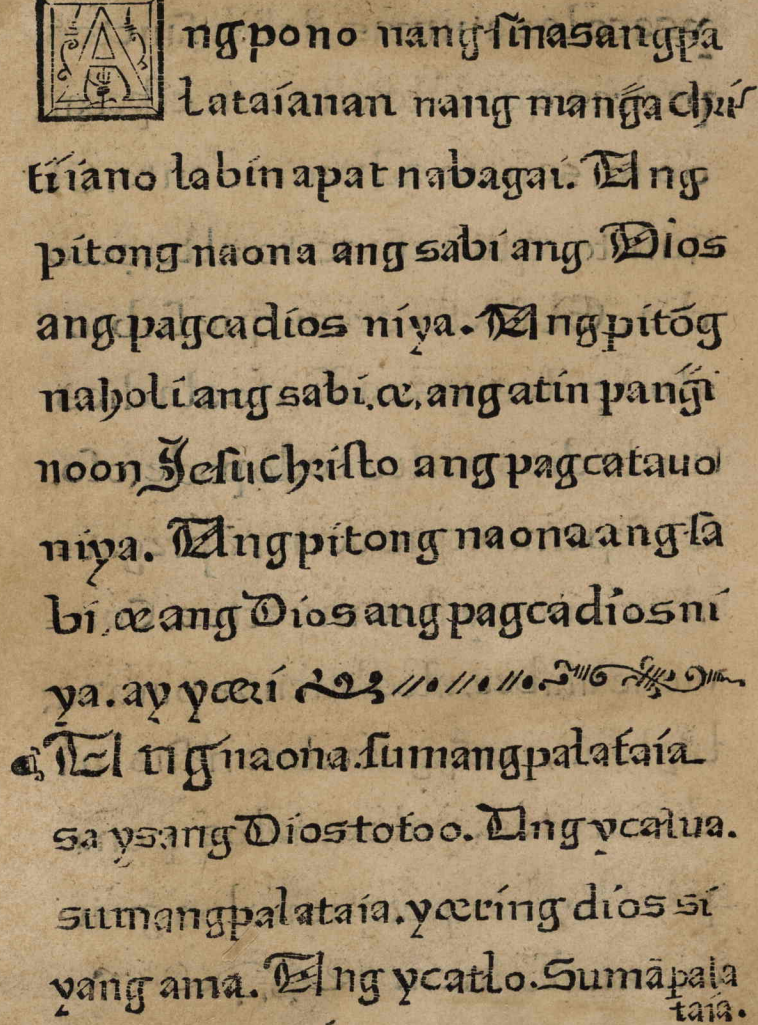 Ang pono nang sinasangpa
lataianan nang mang̃a chris
tiiano labin apat nabagai. Ang
pitong naona ang sabi ang Dios
ang pagcadios niya. Ang pitõg
naholi ang sabi, æ, ang atin pang̃i
noon Jesu Christo ang pagcatauo
niya. Ang pitong naona ang sa
bi, æ ang Dios ang pagcadios ni
ya. ay yæri
Ang naona. sumangpalataia
sa ysang Dios totoo. Ang ycalua.
sumangpalataia. yæring dios si
yang ama. Ang ycatlo. Sumãpala
taia.